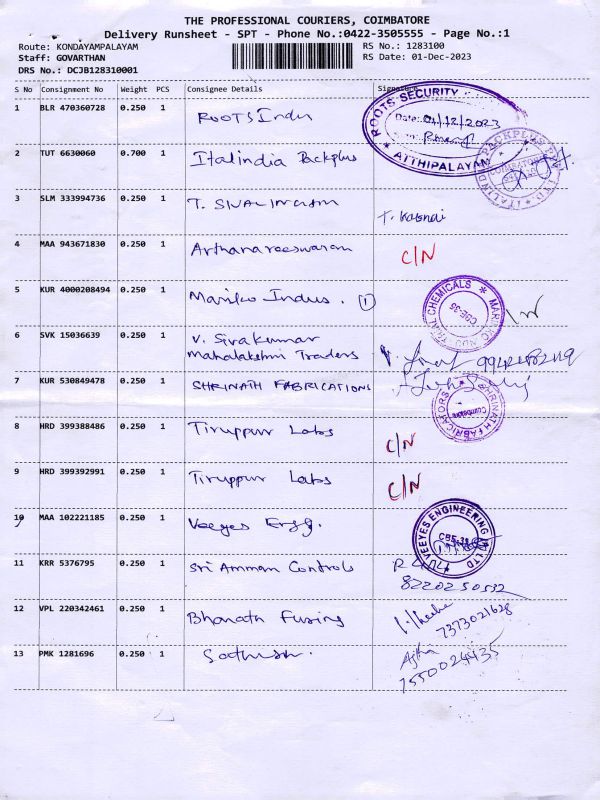 THE PROFESSIONAL COURIERS, COIMBATORE
Delivery Runsheet - SPT - Phone No.:0422-3505555 - Page No.:1
Route: KONDAYAMPALAYAM
Staff: GOVARTHAN
DRS No.: DCJB128310001
RS No.: 1283100
RS Date: 01-Dec-2023
S No Consignment No Weight PCS Consignee Details Signature
1 BLR 470360728 0.250 1 ROOTS Indu
ROOTS SECURITY
Date: 01/12/2023
ATTHIPALAYAM
2 TUT 6630060 0.700 1 Italindia Packplus
3 SLM 333994736 0.250 1 T. SIVALINGAM
4 MAA 943671830 0.250 1 Arthanareeswaran C/N
5 KUR 4000208494 0.250 1 Mariko Indus. 1
CBE-35
6 SVK 15036639 0.250 1 V. Sivakumar
Mahalakshmi Traders
7 KUR 530849478 0.250 1 SHRINATH FABRICATIONS
SHRINATH FABRICATORS
Coimbatore
8 HRD 399388486 0.250 1 Tiruppur Labs C/N
9 HRD 399392991 0.250 1 Tiruppur Labs C/N
10 MAA 102221185 0.250 1 Veeyes Engg.
VEEYES ENGINEERING
11 KRR 5376795 0.250 1 Sri Amman Controls
8220250532
12 VPL 220342461 0.250 1 Bharath Fusing
7373021628
13 PMK 1281696 0.250 1 Sathish.
7550024435